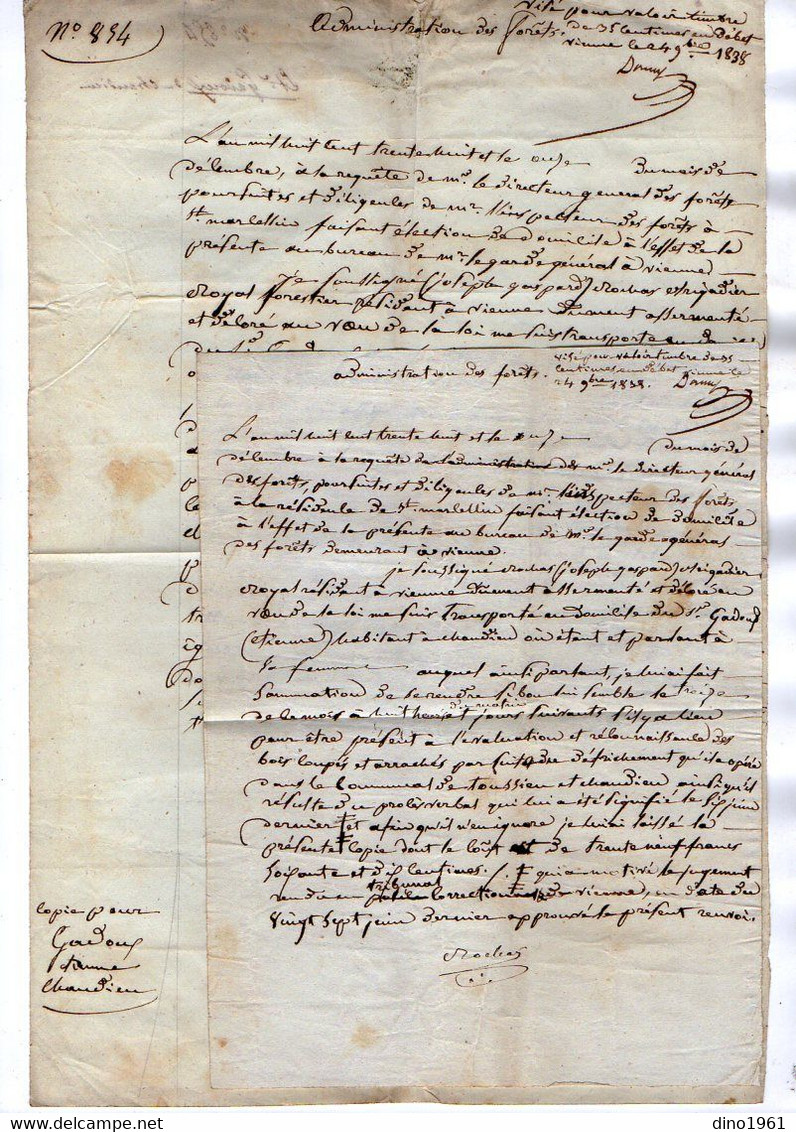 N° 854
Administration des forêts.
Visé pour valoir timbre
de 35 centimes en débet
vienne le 24 9bre 1838
Donny
L'an mil huit cent trente huit et le onze du mois de
décembre, à la requête de mr. le directeur general des forêts
poursuites et diligences de mr. l'inspecteur des forêts à
st. marcellin faisant élection de domicile à l'effet de la
présente au bureau de mr. le garde général à vienne
Je soussigné (joseph gaspard) Rochas brigadier
royal forestier résidant à vienne dument assermenté
et décoré au vœu de la loi me suis transporté au
administration des forêts.
visé pour valoir timbre de 35
centimes en débet vienne le
24 9bre 1838. Donny
L'an mil huit cent trente huit et le onze du mois de
décembre à la requête de l'administration de mr. le directeur général
des forêts, poursuites et diligences de mr. l'inspecteur des forêts
à la résidence de st. marcellin faisant élection de domicile
à l'effet de la présente au bureau de mr. le garde général
des forêts demeurant à vienne.
je soussigné Rochas (joseph gaspard) brigadier
royal résidant à vienne dûment assermenté et décoré en
vœu de la loi me suis transporté au domicile du sr. Gadoux
(etienne) habitant à chandieu où étant et parlant à
sa femme auquel ainsi parlant, je lui ai fait
sommation de se rendre si bon lui semble le treize
de ce mois à huit heures du matin et jours suivants s'il y a lieu
pour être présent à l'évaluation et reconnaissance des
bois coupés et arrachés par suite de défrichement qu'il a opéré
dans le communal de toussieu et chandieu, ainsi qu'il
résulte d'un procès verbal qui lui a été signifié le six juin
dernier ‡ et afin qu'il n'en ignore je lui ai laissé la
présente copie dont le coût est de trente neuf francs
soixante et dix centimes. /. ‡ qui a motivé le jugement
rendu au tribunal correctionnel de vienne, en date du
vingt sept juin dernier approuvé le présent renvoi.
Rochas
copie pour
Gadoux
etienne
chandieu
dino1961